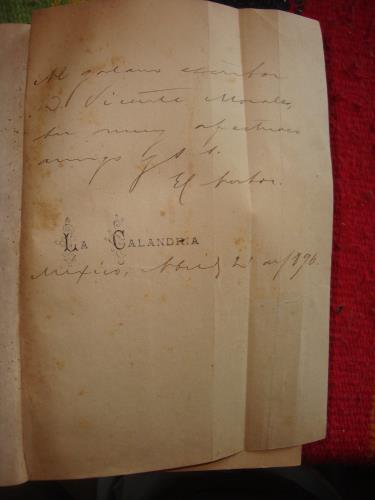 Al galano escritor
D. Vicente Morales,
su muy afectuoso
amigo y s. s.
El Autor.
LA CALANDRIA
México, Abril 2 de 1896.